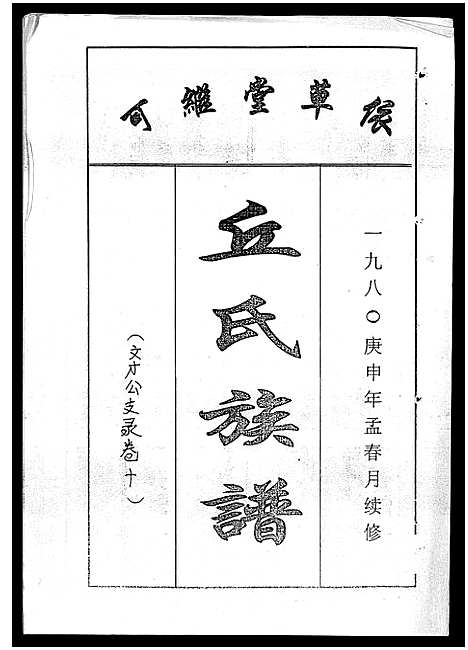 堂草
一九八〇庚申年孟春月续修
丘氏族譜
（文才公支录卷十）